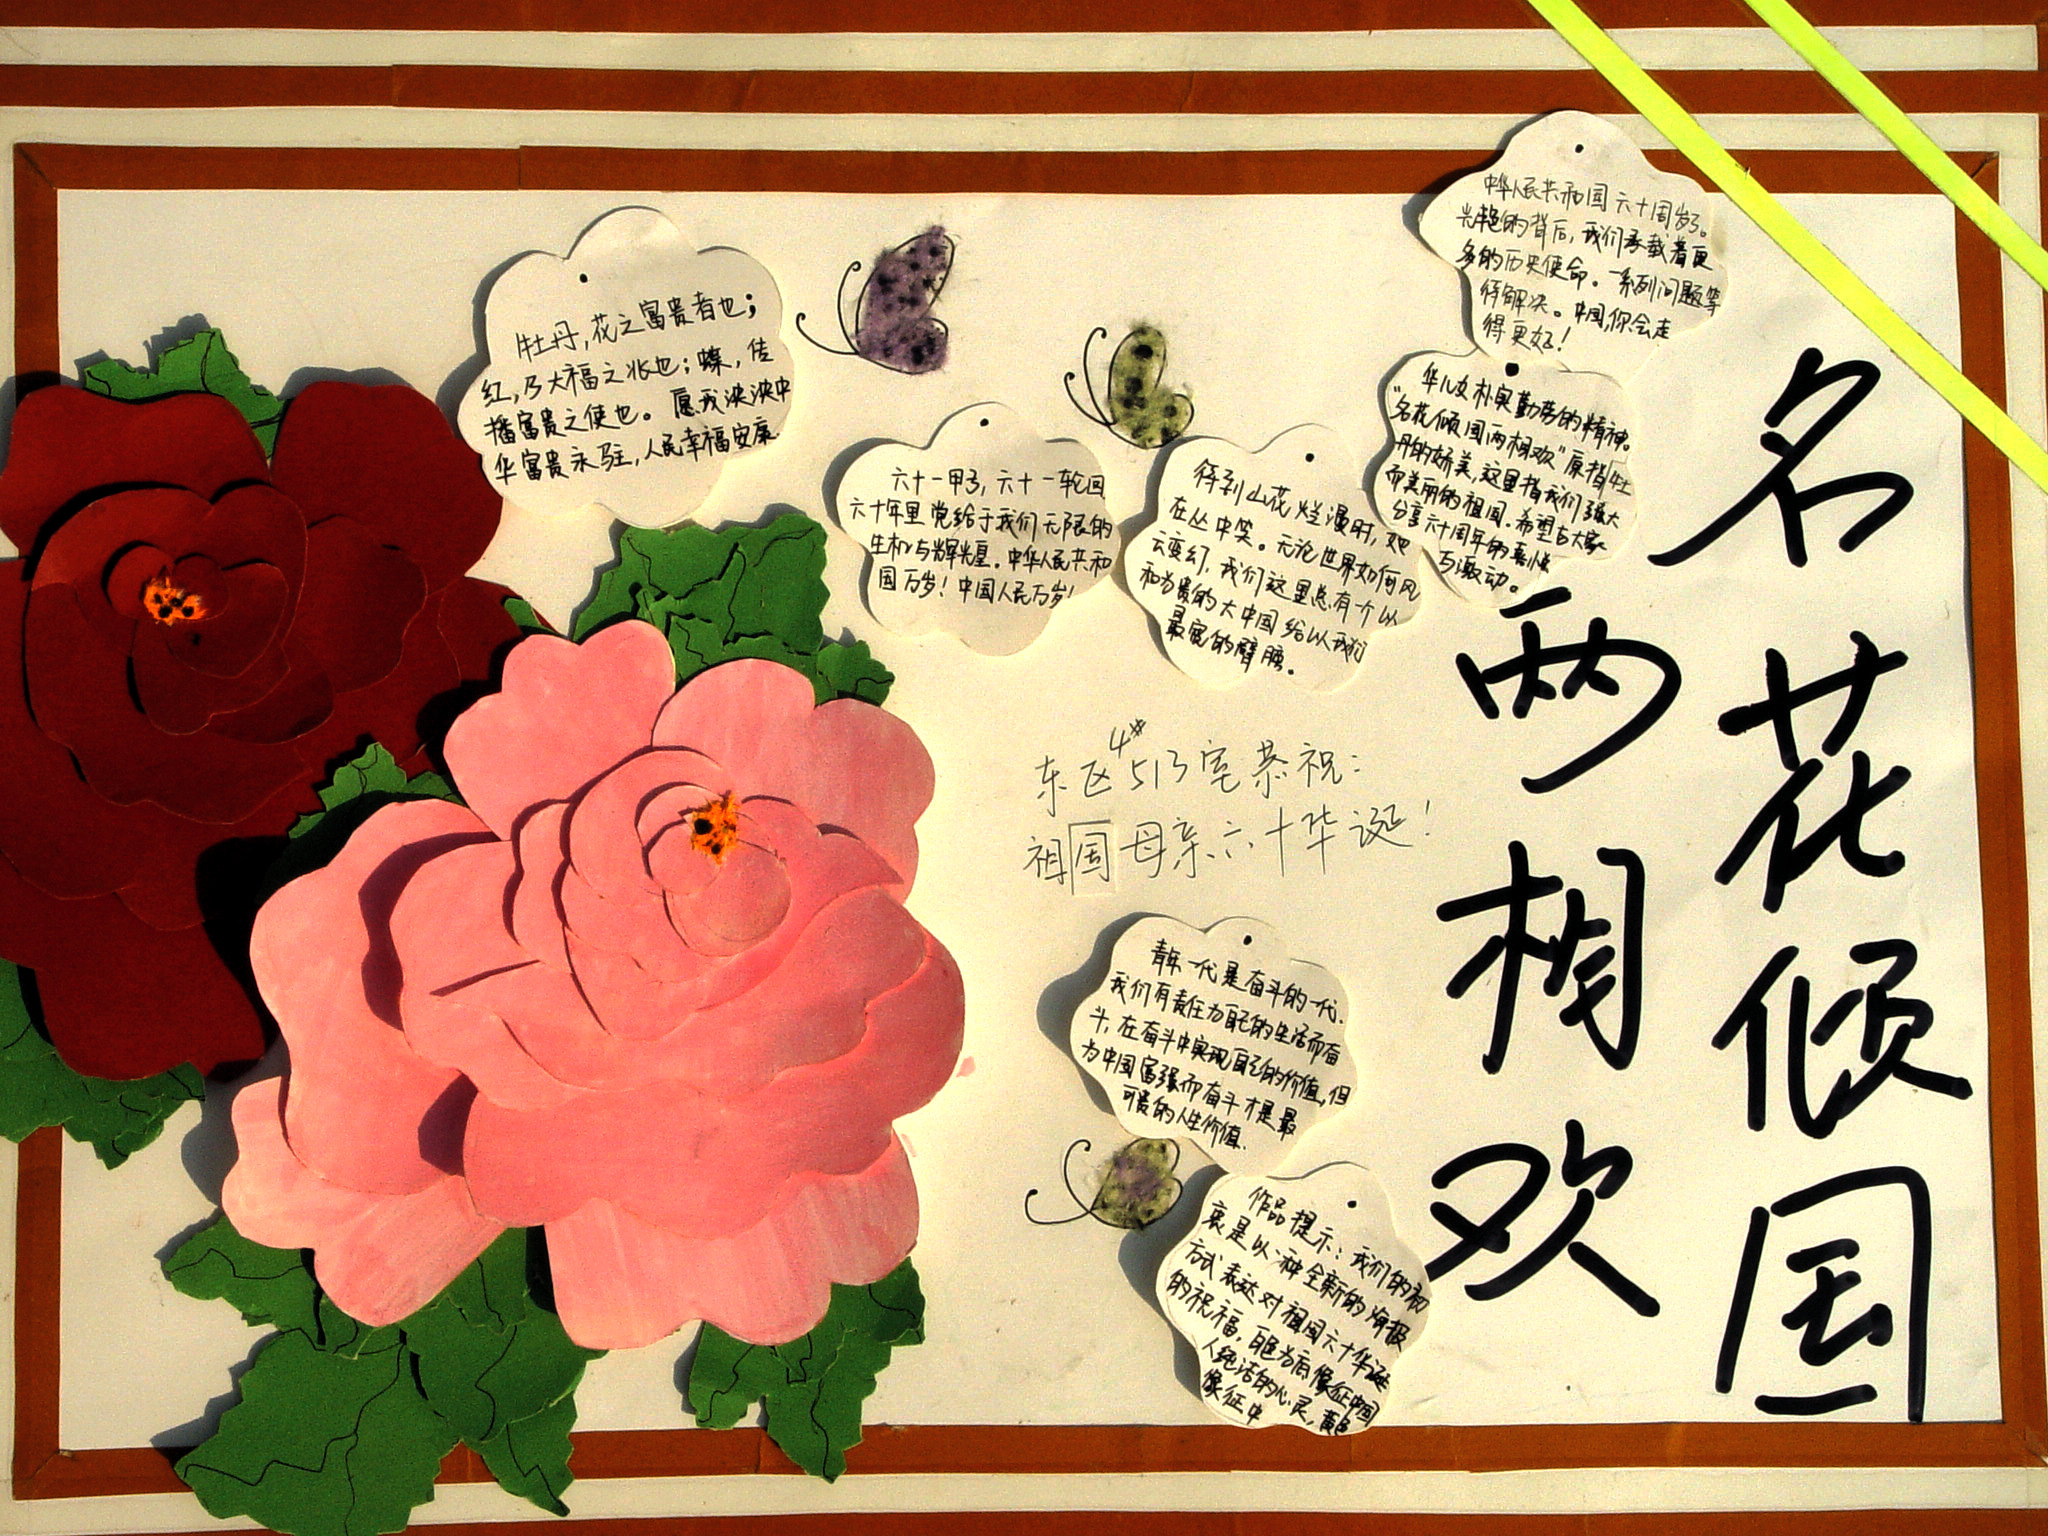 名花倾国
两相欢
牡丹,花之富贵者也;
红,乃大福之兆也;蝶,传
播富贵之使也。愿我泱泱中
华富贵永驻,人民幸福安康.
六十一甲子,六十一轮回,
六十年里党给于我们无限的
生机与辉煌。中华人民共和
国万岁!中国人民万岁!
待到山花烂漫时,她
在丛中笑。无论世界如何风
云变幻,我们这里总有一个以
和为贵的大中国给以我们
最宽的臂膀。
中华人民共和国六十周岁了。
光艳的背后,我们承载着更
多的历史使命。一系列问题等
待解决。中国,你会走
得更好!
华儿女朴实勤劳的精神。
"名花倾国两相欢"原指牡
丹的娇美,这里指我们强大
而美丽的祖国.希望与大家
分享六十周年的喜悦
与激动。
东区4#513室恭祝:
祖国母亲六十华诞!
青年一代是奋斗的一代.
我们有责任为自己的生活而奋
斗,在奋斗中实现自己的价值,但
为中国富强而奋斗才是最
可贵的人生价值.
作品提示:我们的初
衷是以一种全新的海报
方式表达对祖国六十华诞
的祝福,白色为底像征中国
人纯洁的心灵,黄色
像征中